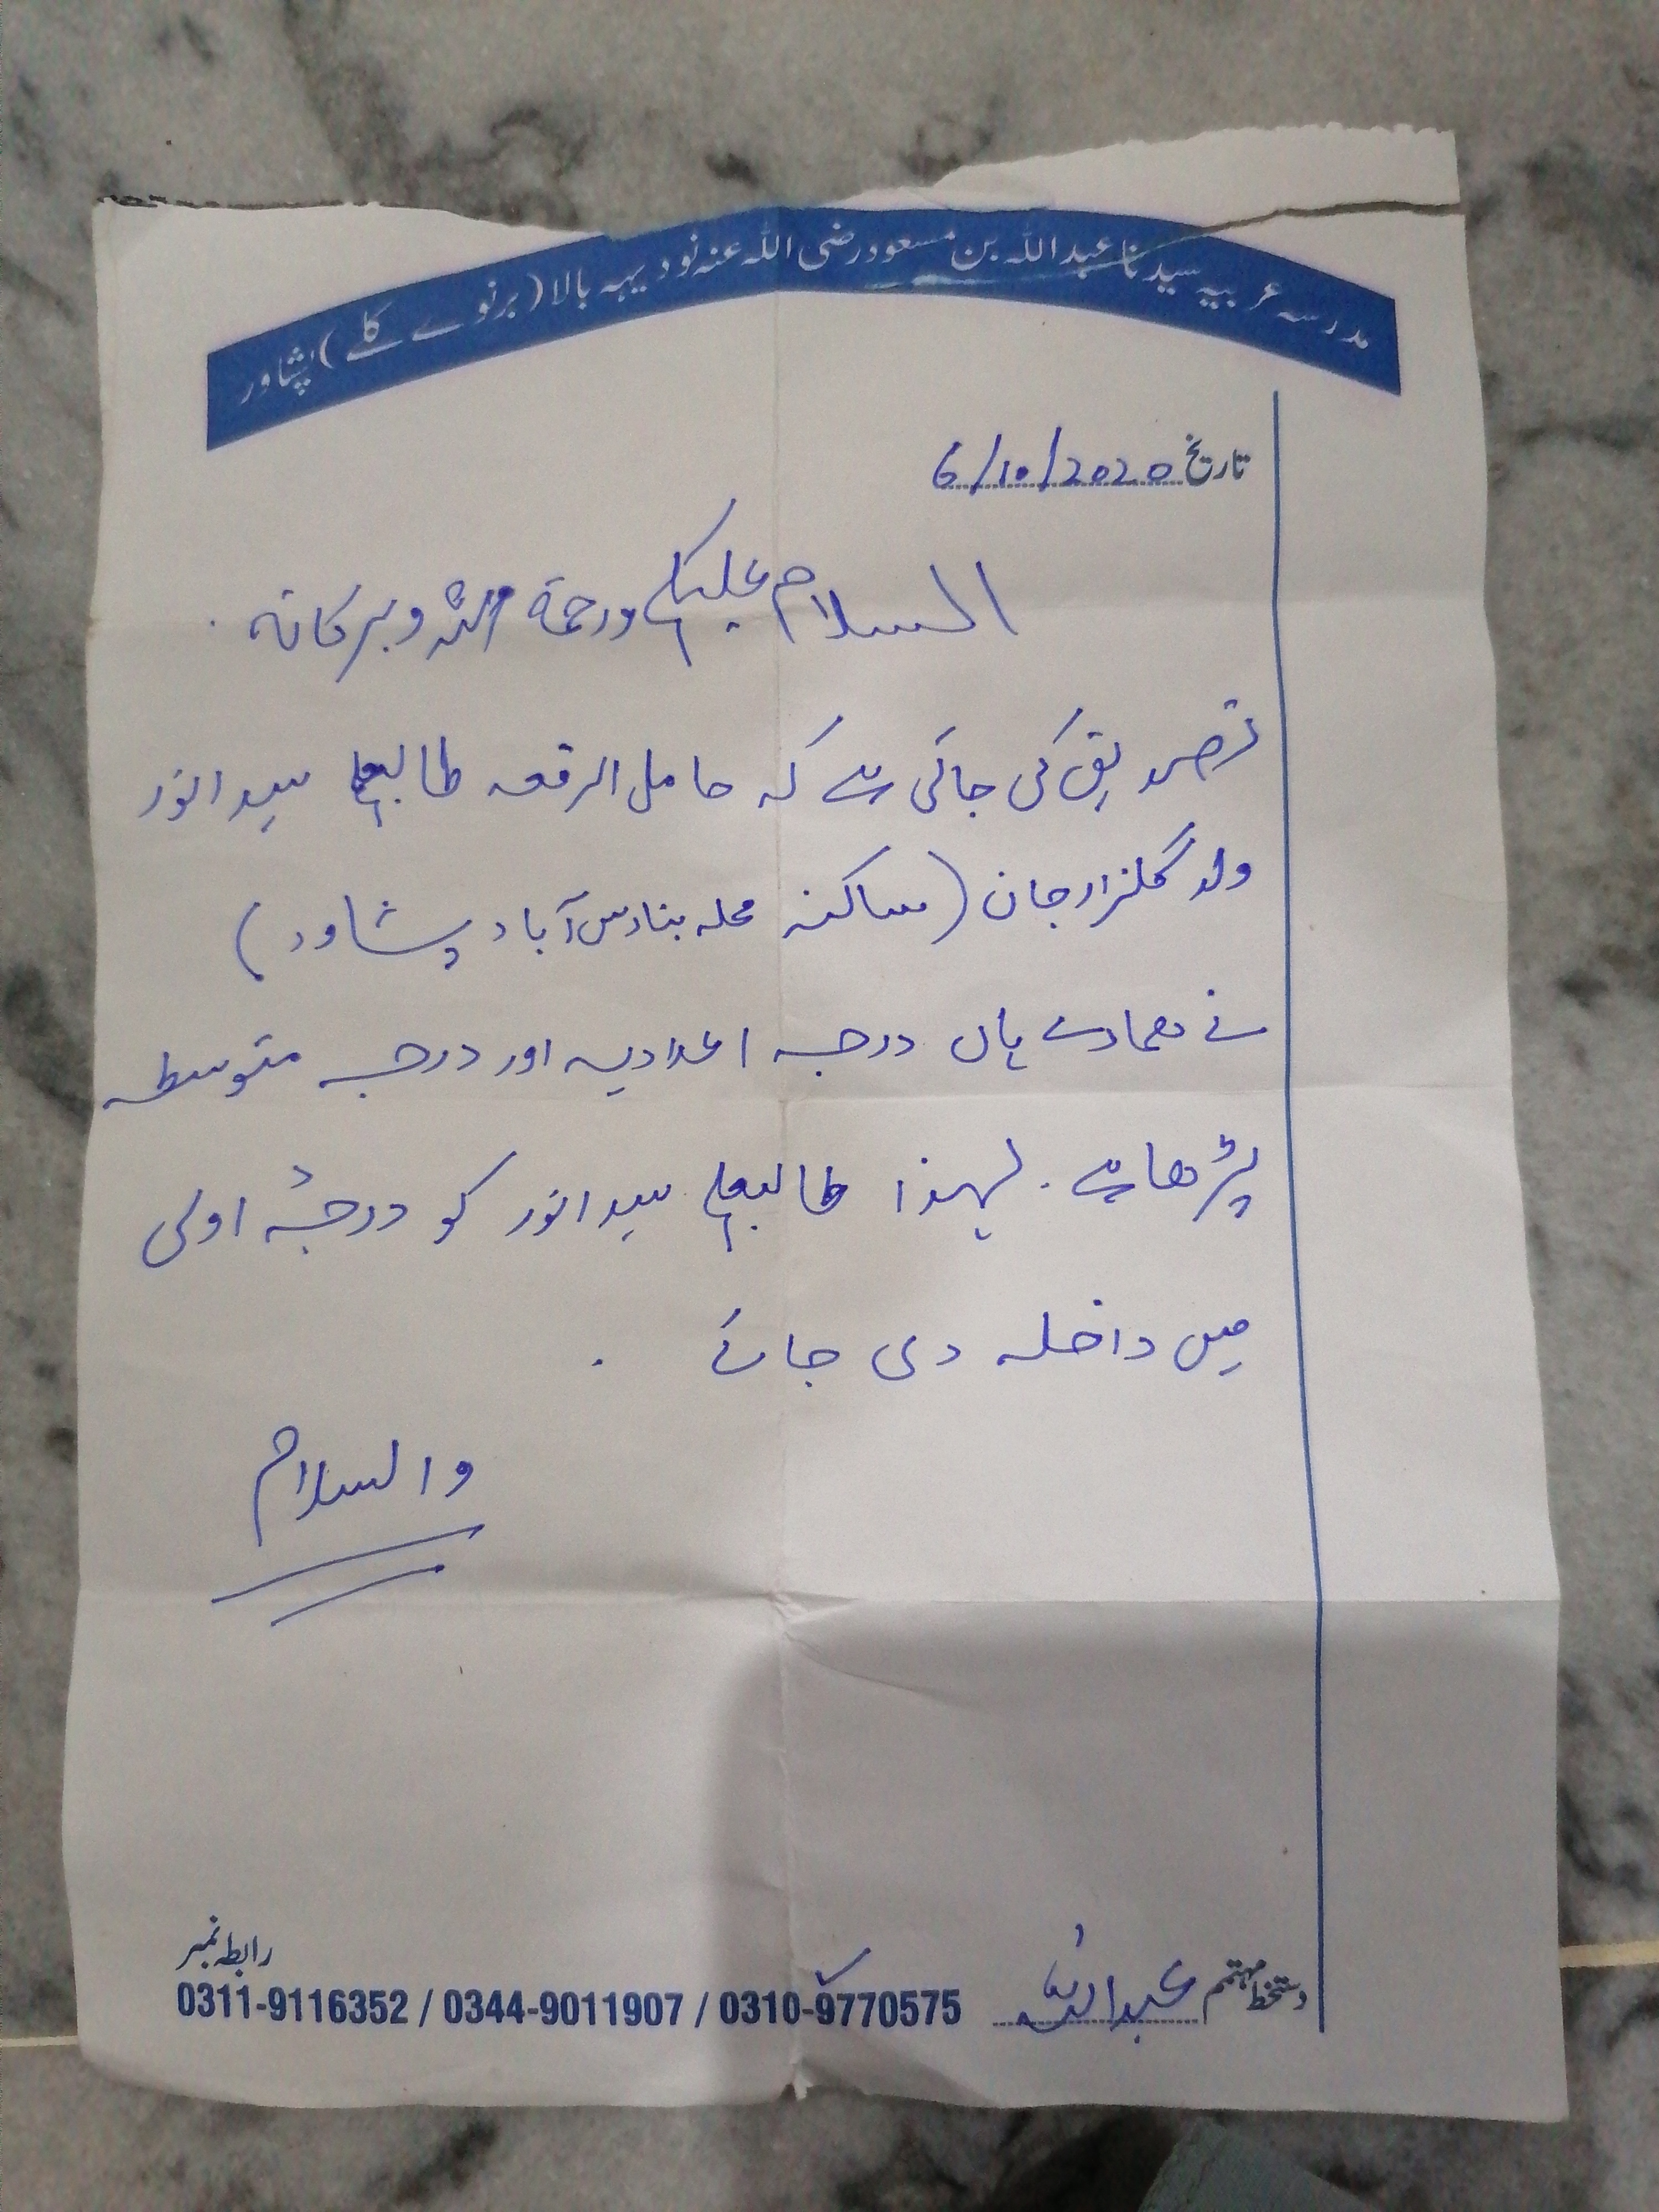 مدرسہ عربیہ سیدنا عبداللہ بن مسعود رضی اللہ عنہ نودیہہ بالا (برنوے کلے) پشاور
تاریخ 6/10/2020
السلام علیکم ورحمۃ اللہ وبرکاتہ
تصدیق کی جاتی ہے کہ حامل الرقعہ طالبعلم سید انور
ولد گلزار جان (ساکنہ محلہ بنارس آباد پشاور)
نے ہمارے ہاں درجہ اعدادیہ اور درجہ متوسطہ
پڑھا ہے . لہذا طالبعلم سید انور کو درجہ اولی
میں داخلہ دی جائے .
والسلام
دستخط مہتمم عبداللہ
رابطہ نمبر
0311-9116352 / 0344-9011907 / 0310-9770575